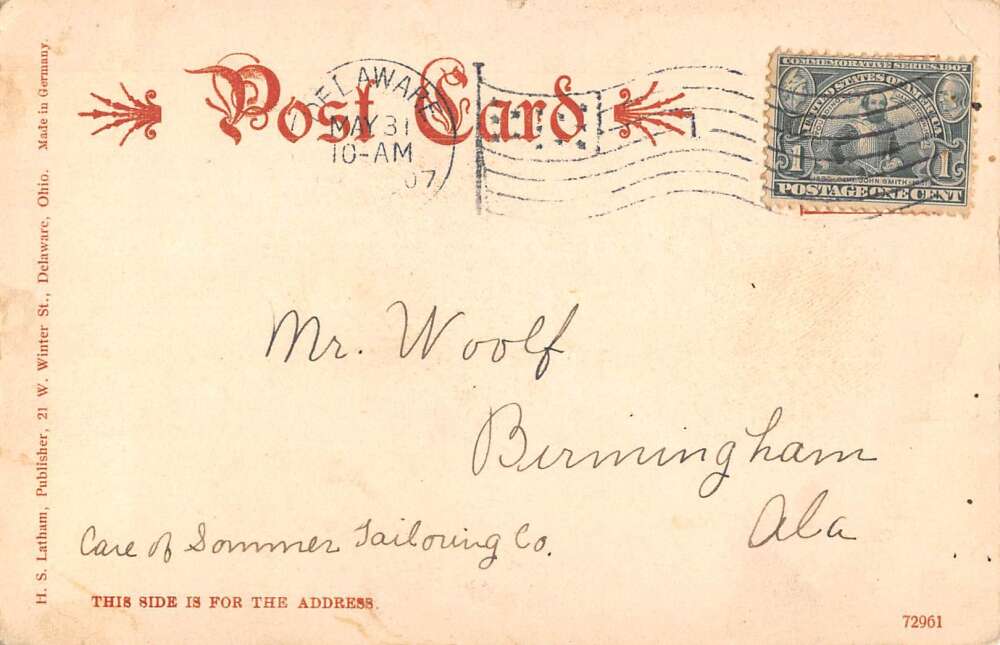 Post Card
DELAWARE
MAY 31
10-AM
07
1
COMMEMORATIVE SERIES 1907
UNITED STATES OF AMERICA
JOHN SMITH
1 1
POSTAGE ONE CENT
Mr. Woolf
Birmingham
Ala
Care of Sommer Tailoring Co.
THIS SIDE IS FOR THE ADDRESS.
72961
H. S. Latham, Publisher, 21 W. Winter St., Delaware, Ohio. Made in Germany.